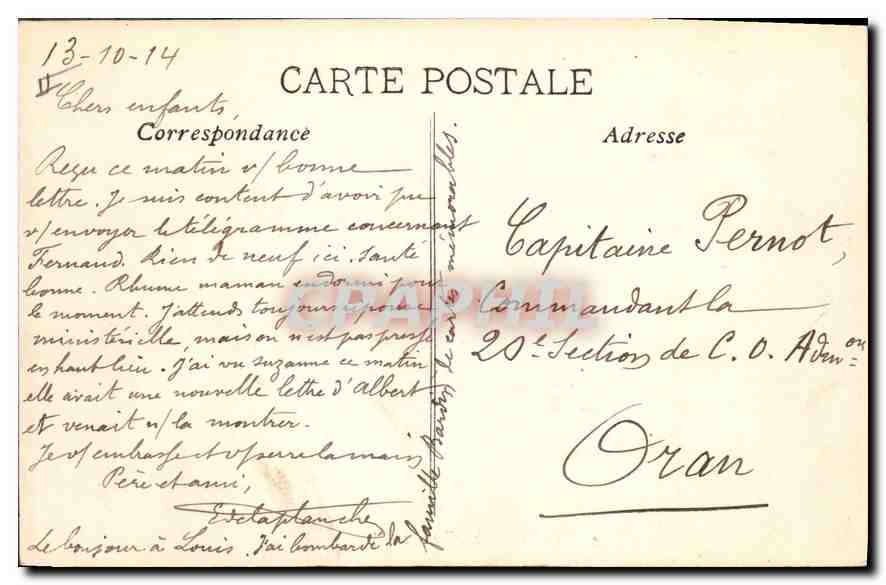 13-10-14
CARTE POSTALE
Chers enfants,
Correspondance
Reçu ce matin v/ bonne
lettre. Je suis content d'avoir pu
v/ envoyer le télégramme concernant
Fernand. Rien de neuf ici. Santé
bonne. Rhume maman endormi pour
le moment. J'attends toujours réponse
ministérielle, mais on n'est pas pressé
en haut lieu. J'ai vu Suzanne ce matin
elle avait une nouvelle lettre d'Albert
et venait n/ la montrer.
Je v/ embrasse et v/ serre la main
Père et ami,
Edelaplanche
Le bonjour à Louis. J'ai bombardé la
famille Bardin de cartes mémorables.
Adresse
Capitaine Pernot,
Commandant la
20e Section de C. O. Admon
Oran
CPAPHIL